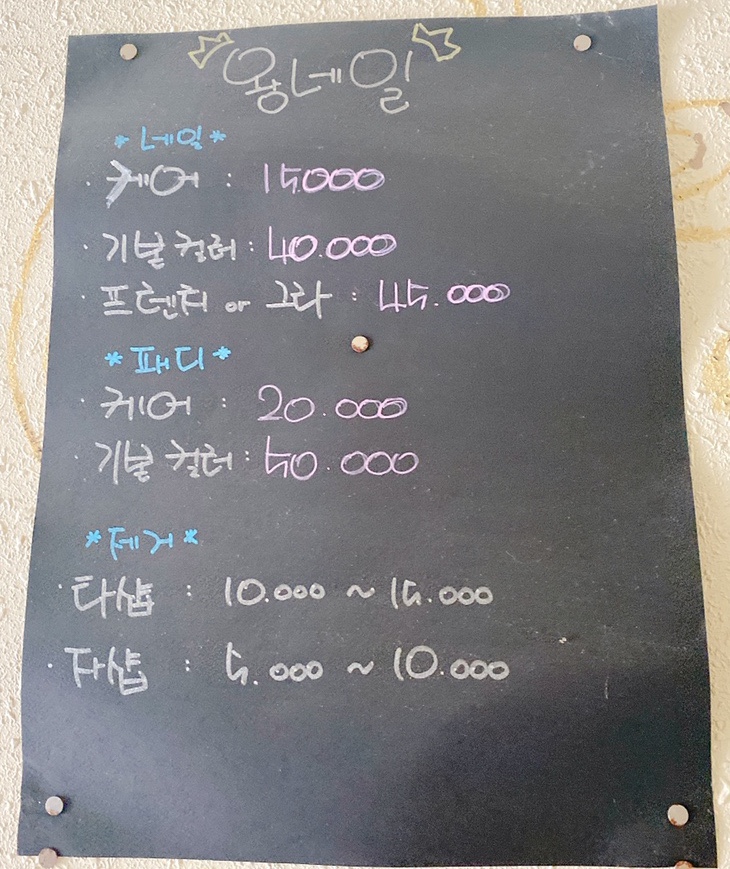 왕네일
*네일*
· 케어 : 15000
· 기본컬러 : 40.000
· 프렌치 or 그라 : 45.000
*패디*
· 케어 : 20.000
기본컬러 : 50.000
*제거*
· 타샵 : 10.000 ~ 15.000
· 자샵 : 5.000 ~ 10.000